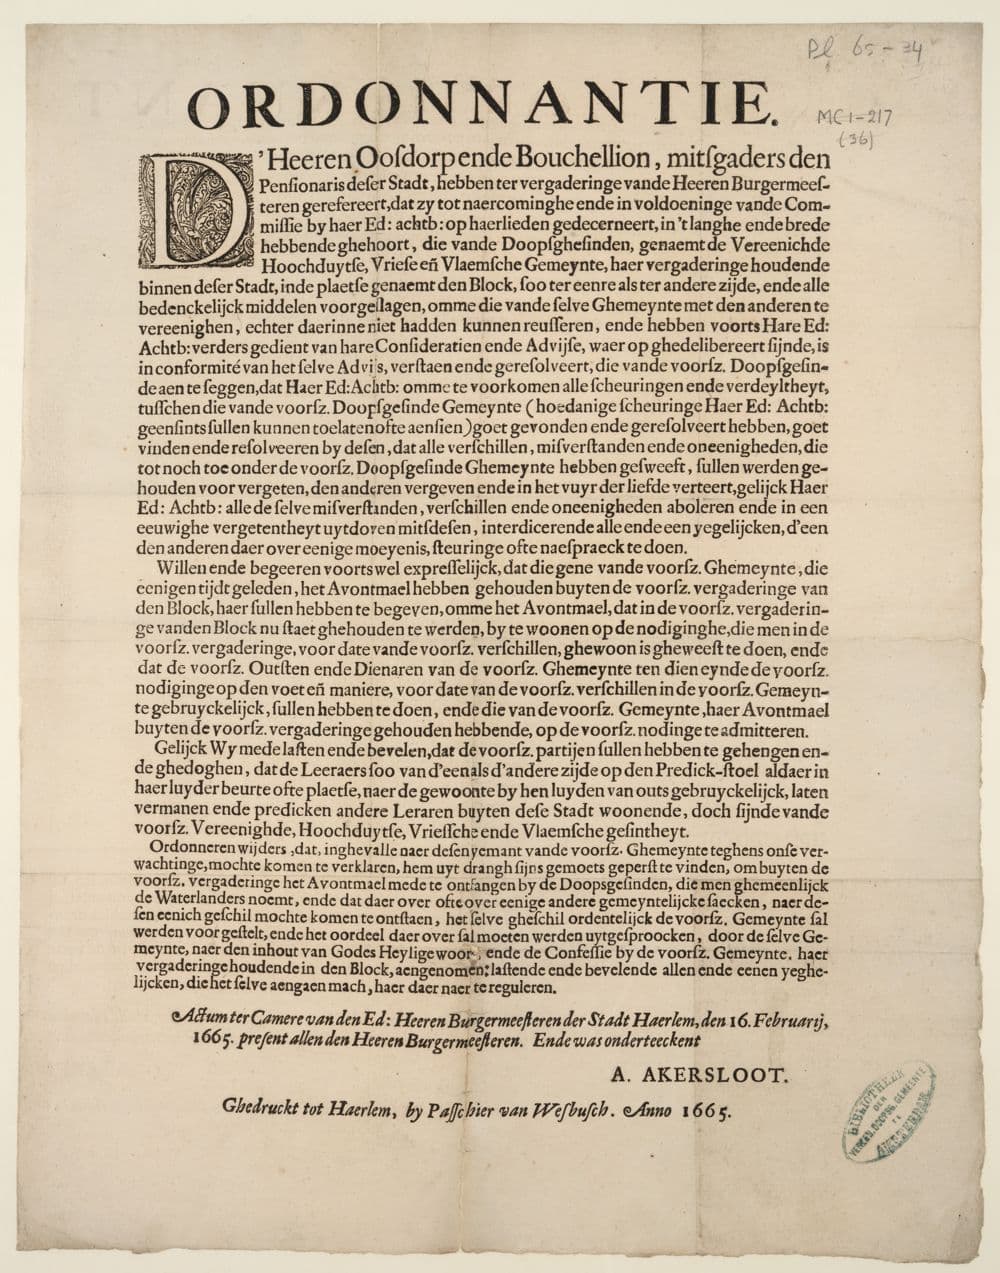 Pl. 65-34
ORDONNANTIE.
MC1-217
(36)
D'Heeren Oosdorp ende Bouchellion, mitſgaders den
Penſionaris deſer Stadt, hebben ter vergaderinge vande Heeren Burgermeeſ-
teren gerefereert, dat zy tot naercominghe ende in voldoeninge vande Com-
miſſie by haer Ed: achtb: op haerlieden gedecerneert, in 't langhe ende brede
hebbende ghehoort, die vande Doopſgheſinden, genaemt de Vereenichde
Hoochduytſe, Vrieſe eñ Vlaemſche Gemeynte, haer vergaderinge houdende
binnen deſer Stadt, inde plaetſe genaemt den Block, ſoo ter eenre als ter andere zijde, ende alle
bedenckelijck middelen voorgeſlagen, omme die vande ſelve Ghemeynte met den anderen te
vereenighen, echter daerinne niet hadden kunnen reuſſeren, ende hebben voorts Hare Ed:
Achtb: verders gedient van hare Conſideratien ende Advijſe, waer op ghedelibereert ſijnde, is
in conformité van het ſelve Advijs, verſtaen ende gereſolveert, die vande voorſz. Doopſgeſin-
de aen te ſeggen, dat Haer Ed: Achtb: omme te voorkomen alle ſcheuringen ende verdeyltheyt,
tuſſchen die vande voorſz. Doopſgeſinde Gemeynte (hoedanige ſcheuringe Haer Ed: Achtb:
geenſints ſullen kunnen toelaten ofte aenſien) goet gevonden ende gereſolveert hebben, goet
vinden ende reſolveeren by deſen, dat alle verſchillen, miſverſtanden ende oneenigheden, die
tot noch toe onder de voorſz. Doopſgeſinde Ghemeynte hebben geſweeft, ſullen werden ge-
houden voor vergeten, den anderen vergeven ende in het vuyr der liefde verteert, gelijck Haer
Ed: Achtb: alle de ſelve miſverſtanden, verſchillen ende oneenigheden aboleren ende in een
eeuwighe vergetentheyt uytdoven mitſdeſen, interdicerende alle ende een yegelijcken, d'een
den anderen daer over eenige moeyenis, ſteuringe ofte naeſpraeck te doen.
Willen ende begeeren voorts wel expreſſelijck, dat die gene vande voorſz. Ghemeynte, die
eenigen tijdt geleden, het Avontmael hebben gehouden buyten de voorſz. vergaderinge van
den Block, haer ſullen hebben te begeven, omme het Avontmael, dat in de voorſz. vergaderin-
ge vanden Block nu ſtaet ghehouden te werden, by te woonen op de nodiginghe, die men in de
voorſz. vergaderinge, voor date vande voorſz. verſchillen, ghewoon is gheweeſt te doen, ende
dat de voorſz. Outſten ende Dienaren van de voorſz. Ghemeynte ten dien eynde de voorſz.
nodiginge op den voet eñ maniere, voor date van de voorſz. verſchillen in de voorſz. Gemeyn-
te gebruyckelijck, ſullen hebben te doen, ende die van de voorſz. Gemeynte, haer Avontmael
buyten de voorſz. vergaderinge gehouden hebbende, op de voorſz. nodinge te admitteren.
Gelijck Wy mede laſten ende bevelen, dat de voorſz. partijen ſullen hebben te gehengen en-
de ghedoghen, dat de Leeraers ſoo van d'een als d'andere zijde op den Predick-ſtoel aldaer in
haer luyder beurte ofte plaetſe, naer de gewoonte by hen luyden van outs gebruyckelijck, laten
vermanen ende predicken andere Leraren buyten deſe Stadt woonende, doch ſijnde vande
voorſz. Vereenighde, Hoochduytſe, Vrieſſche ende Vlaemſche geſintheyt.
Ordonneren wijders, dat, inghevalle naer deſen yemant vande voorſz. Ghemeynte teghens onſe ver-
wachtinge, mochte komen te verklaren, hem uyt drangh ſijns gemoets geperſt te vinden, om buyten de
voorſz. vergaderinge het Avontmael mede te ontfangen by de Doopsgeſinden, die men ghemeenlijck
de Waterlanders noemt, ende dat daer over ofte over eenige andere gemeyntelijcke ſaecken, naer de-
ſen eenich geſchil mochte komen te ontſtaen, het ſelve gheſchil ordentelijck de voorſz. Gemeynte ſal
werden voor geſtelt, ende het oordeel daer over ſal moeten werden uytgeſproocken, door de ſelve Ge-
meynte, naer den inhout van Godes Heylige woor, ende de Confeſſie by de voorſz. Gemeynte, haer
vergaderinge houdende in den Block, aengenomen; laſtende ende bevelende allen ende eenen yeghe-
lijcken, die het ſelve aengaen mach, haer daer naer te reguleren.
Actum ter Camere van den Ed: Heeren Burgermeeſteren der Stadt Haerlem, den 16. Februarij,
1665. preſent allen den Heeren Burgermeeſteren. Ende was onderteeckent
A. AKERSLOOT.
Ghedruckt tot Haerlem, by Paſſchier van Weſbuſch. Anno 1665.
BIBLIOTHEEK
DER
VEREEN. DOOPSG. GEMEENTE
TE
AMSTERDAM